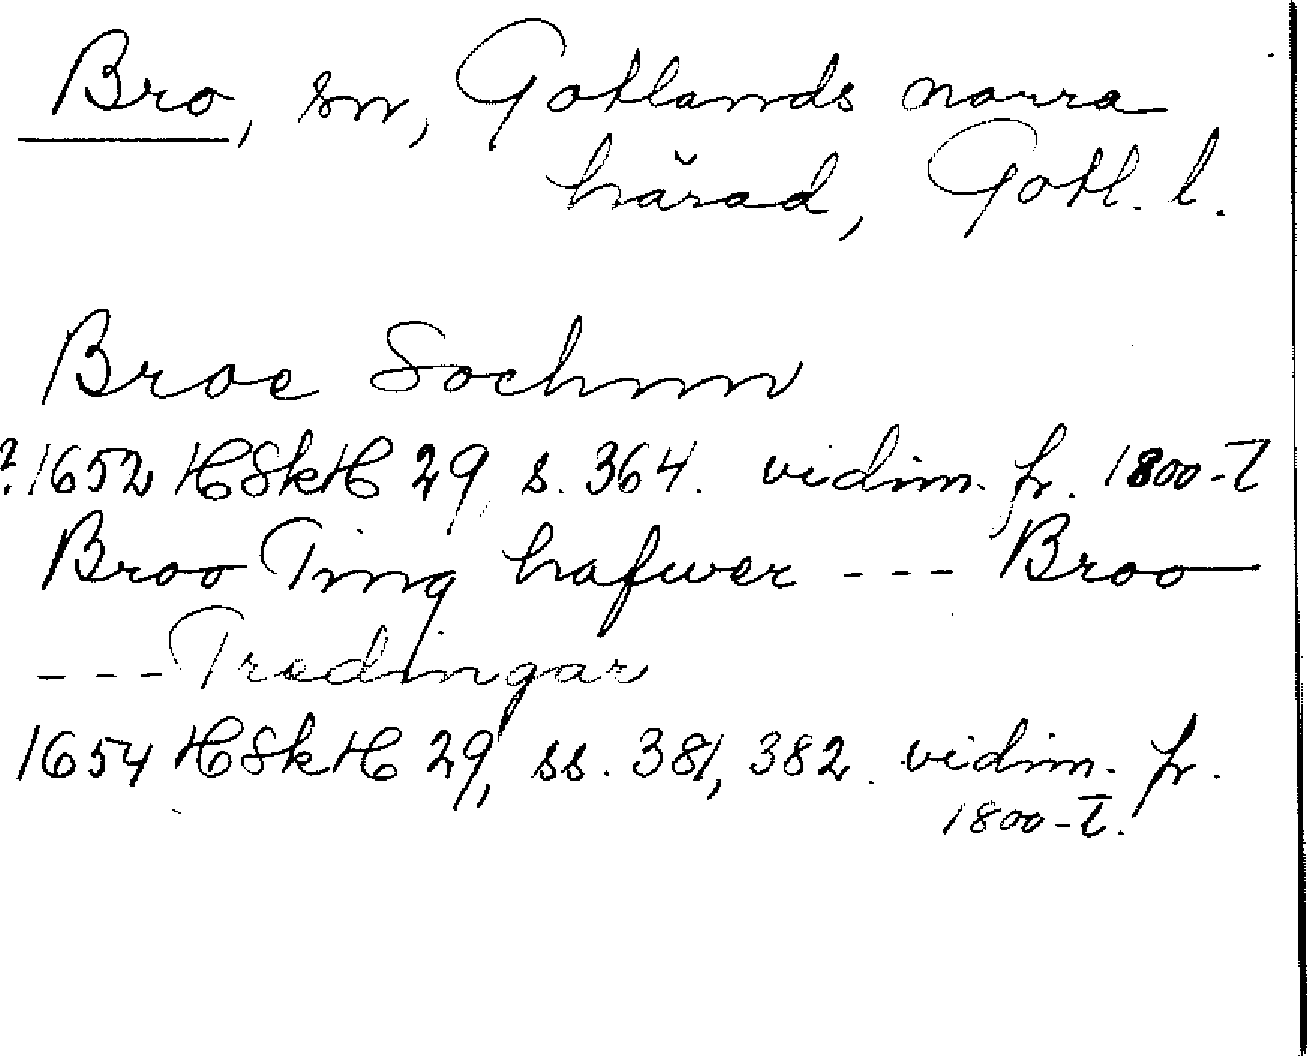 Bro, sn, Gotlands norra
härad, Gotl. l.
Broe Sochnn
?.1652 HSkH 29, s. 364. vidim. fr. 1800-t
Broo Ting hafwer --- Broo
--- Tredingar
1654 HSkH 29, ss. 381, 382. vidim. fr.
1800-t.